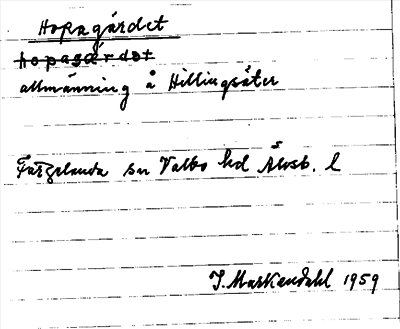 Hopagärdet
hopagärdet
allmänning å Hillingsäter
Färgelanda sn Valbo hd Älvsb. l
J. Markendahl 1959